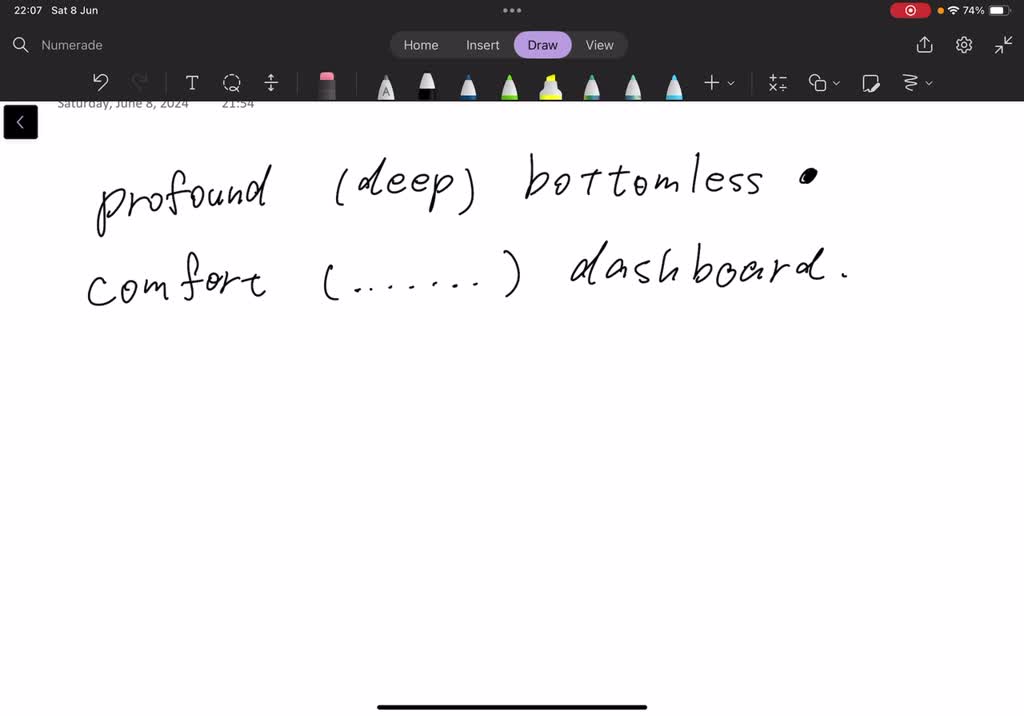 22:07 Sat 8 Jun 74%
Numerade Home Insert Draw View
T A
Saturday, June 8, 2024 21:54
profound (deep) bottomless .
comfort (.......) dashboard.